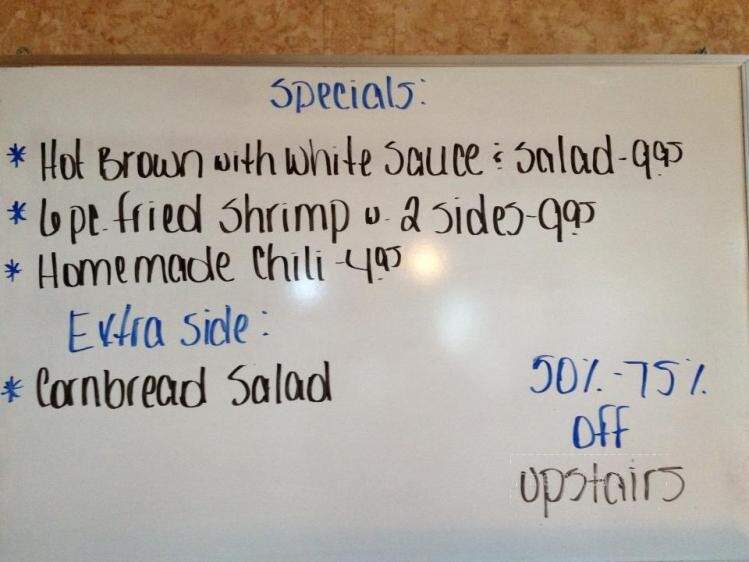 Specials:
* Hot Brown with white sauce & salad - 9.95
* 6 pc. fried shrimp w. 2 sides - 9.95
* Homemade Chili - 4.95
Extra side:
* Cornbread Salad
50% - 75%
Off
upstairs